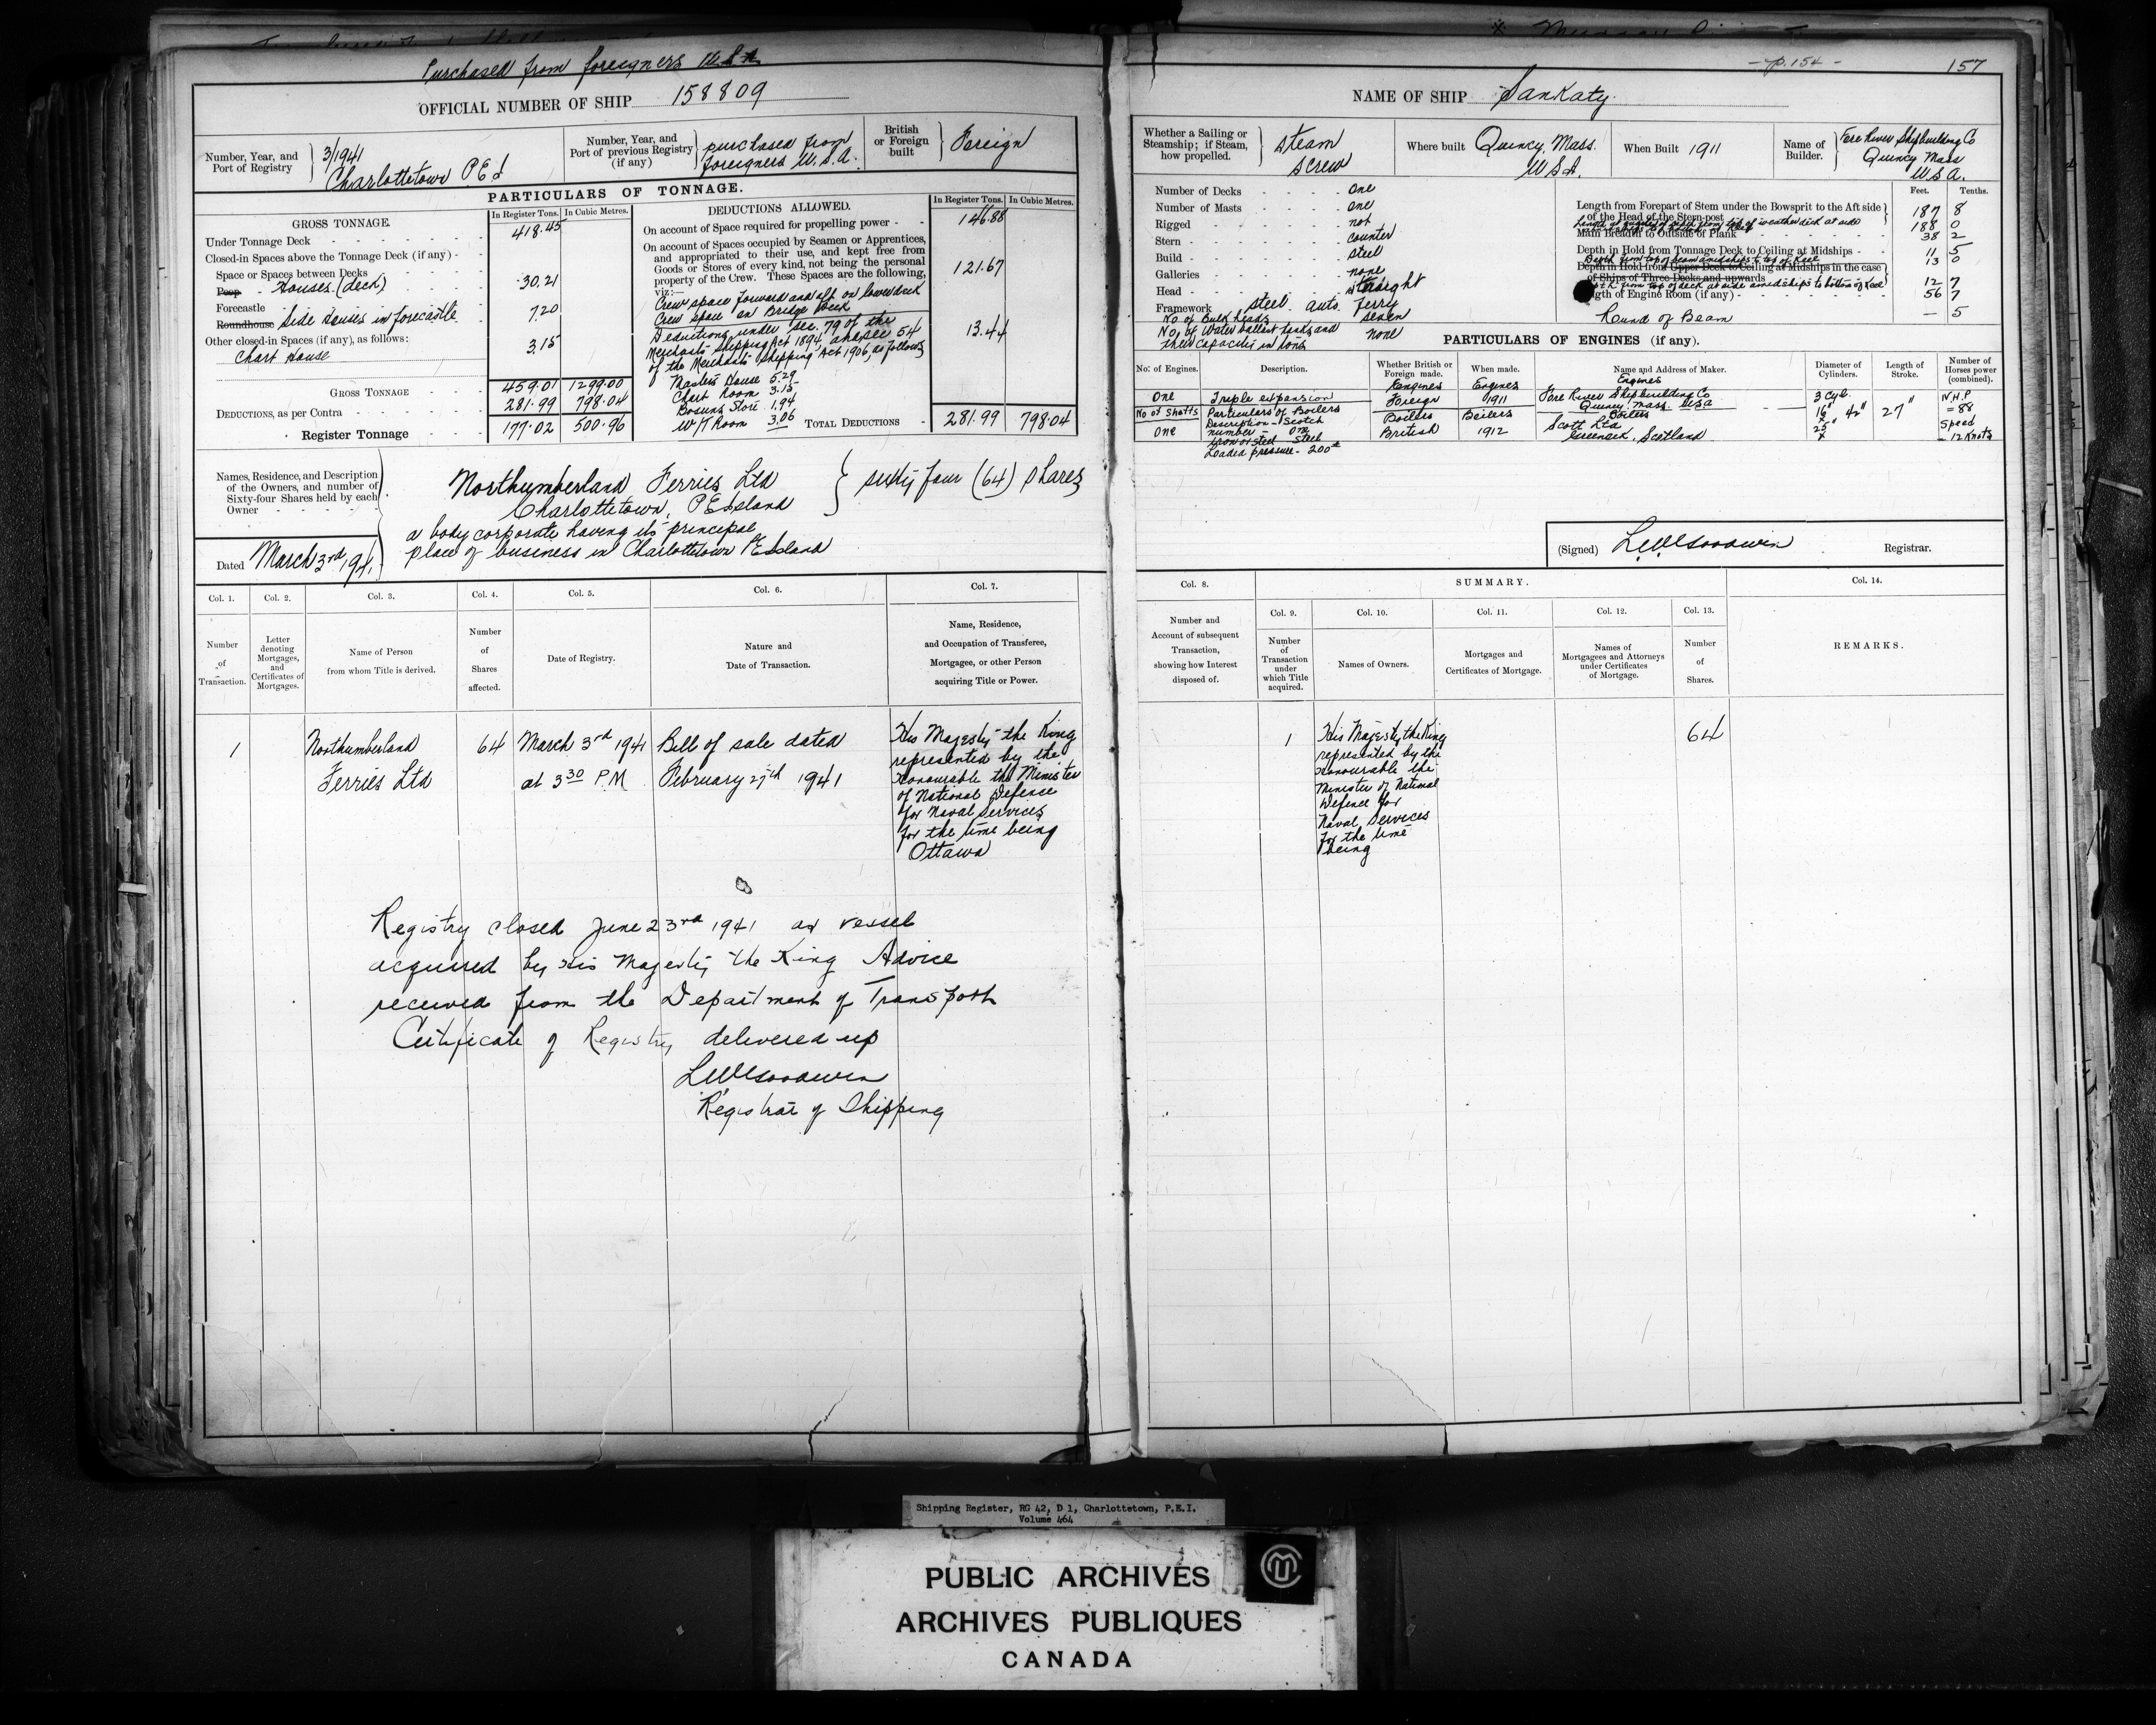 Purchased from foreigners U.S.A.
OFFICIAL NUMBER OF SHIP 158809
Number, Year, and Port of Registry
3/1941
Charlottetown P E I
Number, Year, and Port of previous Registry (if any)
purchased from
foreigners U.S.A.
British or Foreign built
Foreign
PARTICULARS OF TONNAGE.
GROSS TONNAGE.
In Register Tons.
In Cubic Metres.
Under Tonnage Deck 418.45
Closed-in Spaces above the Tonnage Deck (if any)
Space or Spaces between Decks
Poop Houses (deck) 30.21
Forecastle
Roundhouse Side houses in forecastle 7.20
Other closed-in Spaces (if any), as follows:
Chart House 3.15
GROSS TONNAGE 459.01 1299.00
DEDUCTIONS, as per Contra 281.99 798.04
Register Tonnage 177.02 500.96
DEDUCTIONS ALLOWED.
In Register Tons.
In Cubic Metres.
On account of Space required for propelling power 146.88
On account of Spaces occupied by Seamen or Apprentices,
and appropriated to their use, and kept free from
Goods or Stores of every kind, not being the personal
property of the Crew. These Spaces are the following,
viz:—
121.67
Crew space forward and aft on lower deck
Crew space on Bridge Deck
Deductions under Sec. 79 of the
Merchants Shipping Act 1894, chapter 54
of the Merchants Shipping Act 1906, as follows
13.44
Masters House 5.29
Chart Room 3.15
Bosuns Store 1.94
W/T Room 3.06
TOTAL DEDUCTIONS 281.99 798.04
Names, Residence, and Description
of the Owners, and number of
Sixty-four Shares held by each
Owner
Northumberland Ferries Ltd
Charlottetown, P E Island
sixty four (64) shares
a body corporate having its principal
place of business in Charlottetown P E Island
Dated March 3rd 1941
Col. 1.
Col. 2.
Col. 3.
Col. 4.
Col. 5.
Col. 6.
Col. 7.
Number of Transaction.
Letter denoting Mortgages, and Certificates of Mortgages.
Name of Person from whom Title is derived.
Number of Shares affected.
Date of Registry.
Nature and Date of Transaction.
Name, Residence, and Occupation of Transferee, Mortgagee, or other Person acquiring Title or Power.
1
Northumberland
Ferries Ltd
64
March 3rd 1941
at 3 30 P.M
Bill of sale dated
February 27th 1941
His Majesty the King
represented by the
Honourable the Minister
of National Defence
for Naval Services
for the time being
Ottawa
Registry closed June 23rd 1941 as vessel
acquired by His Majesty the King Advice
received from the Department of Transport
Certificate of Registry delivered up
Registrar of Shipping
- p. 154 -
157
NAME OF SHIP Sankaty
Whether a Sailing or Steamship; if Steam, how propelled.
Steam
screw
Where built
Quincy, Mass.
U S A.
When Built 1911
Name of Builder.
Fore River Shipbuilding Co
Quincy Mass
U S A.
Number of Decks One
Number of Masts One
Rigged not
Stern counter
Build steel
Galleries none
Head straight
Framework steel. auto. ferry
No. of Bulkheads seven
No. of Water ballast tanks and
their capacity in tons none
Feet.
Tenths.
Length from Forepart of Stem under the Bowsprit to the Aft side
of the Head of the Stern-post 187 8
188 0
Main Breadth to Outside of Plank 38 2
Depth in Hold from Tonnage Deck to Ceiling at Midships 11 5
Depth from top of beam amidships to top of keel 13 0
Depth in Hold from Upper Deck to Ceiling at Midships in the case
of Ships of Three Decks and upwards
Depth from top of deck at side amidships to bottom of keel 12 7
Length of Engine Room (if any) 56 7
Round of Beam — 5
PARTICULARS OF ENGINES (if any).
No. of Engines.
Description.
Whether British or Foreign made.
When made.
Name and Address of Maker.
Diameter of Cylinders.
Length of Stroke.
Number of Horses power (combined).
One
Triple expansion
Engines
Foreign
Engines
1911
Engines
Fore River Shipbuilding Co
Quincy, Mass. USA
3 Cyl.
16" 42"
25"
27"
N.H.P
= 88
Speed
12 Knots
No of Shafts
One
Particulars of Boilers
Description - Scotch
Number - One
Iron or steel - Steel
Loaded pressure - 200
Boilers
British
Boilers
1912
Boilers
Scott Ltd
Greenock, Scotland
(Signed)
Registrar.
Col. 8.
SUMMARY.
Col. 14.
Col. 9.
Col. 10.
Col. 11.
Col. 12.
Col. 13.
Number and Account of subsequent Transaction, showing how Interest disposed of.
Number of Transaction under which Title acquired.
Names of Owners.
Mortgages and Certificates of Mortgage.
Names of Mortgagees and Attorneys under Certificates of Mortgage.
Number of Shares.
REMARKS.
1
His Majesty the King
represented by the
Honourable the
Minister of National
Defence for
Naval Services
for the time
being
64
Shipping Register, RG 42, D 1, Charlottetown, P.E.I.
Volume 464
PUBLIC ARCHIVES
ARCHIVES PUBLIQUES
CANADA